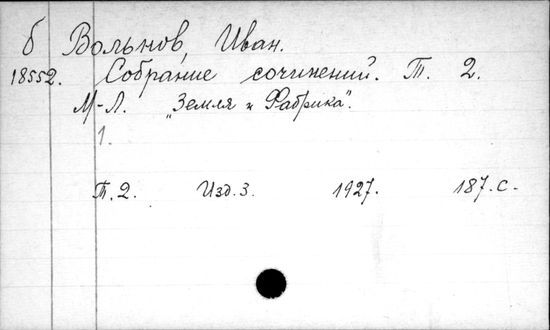 б Вольнов, Иван.
18552. Собрание сочинений. Т. 2.
М-Л. „Земля и Фабрика".
1.
Т. 2. Изд. 3. 1927. 187 с.